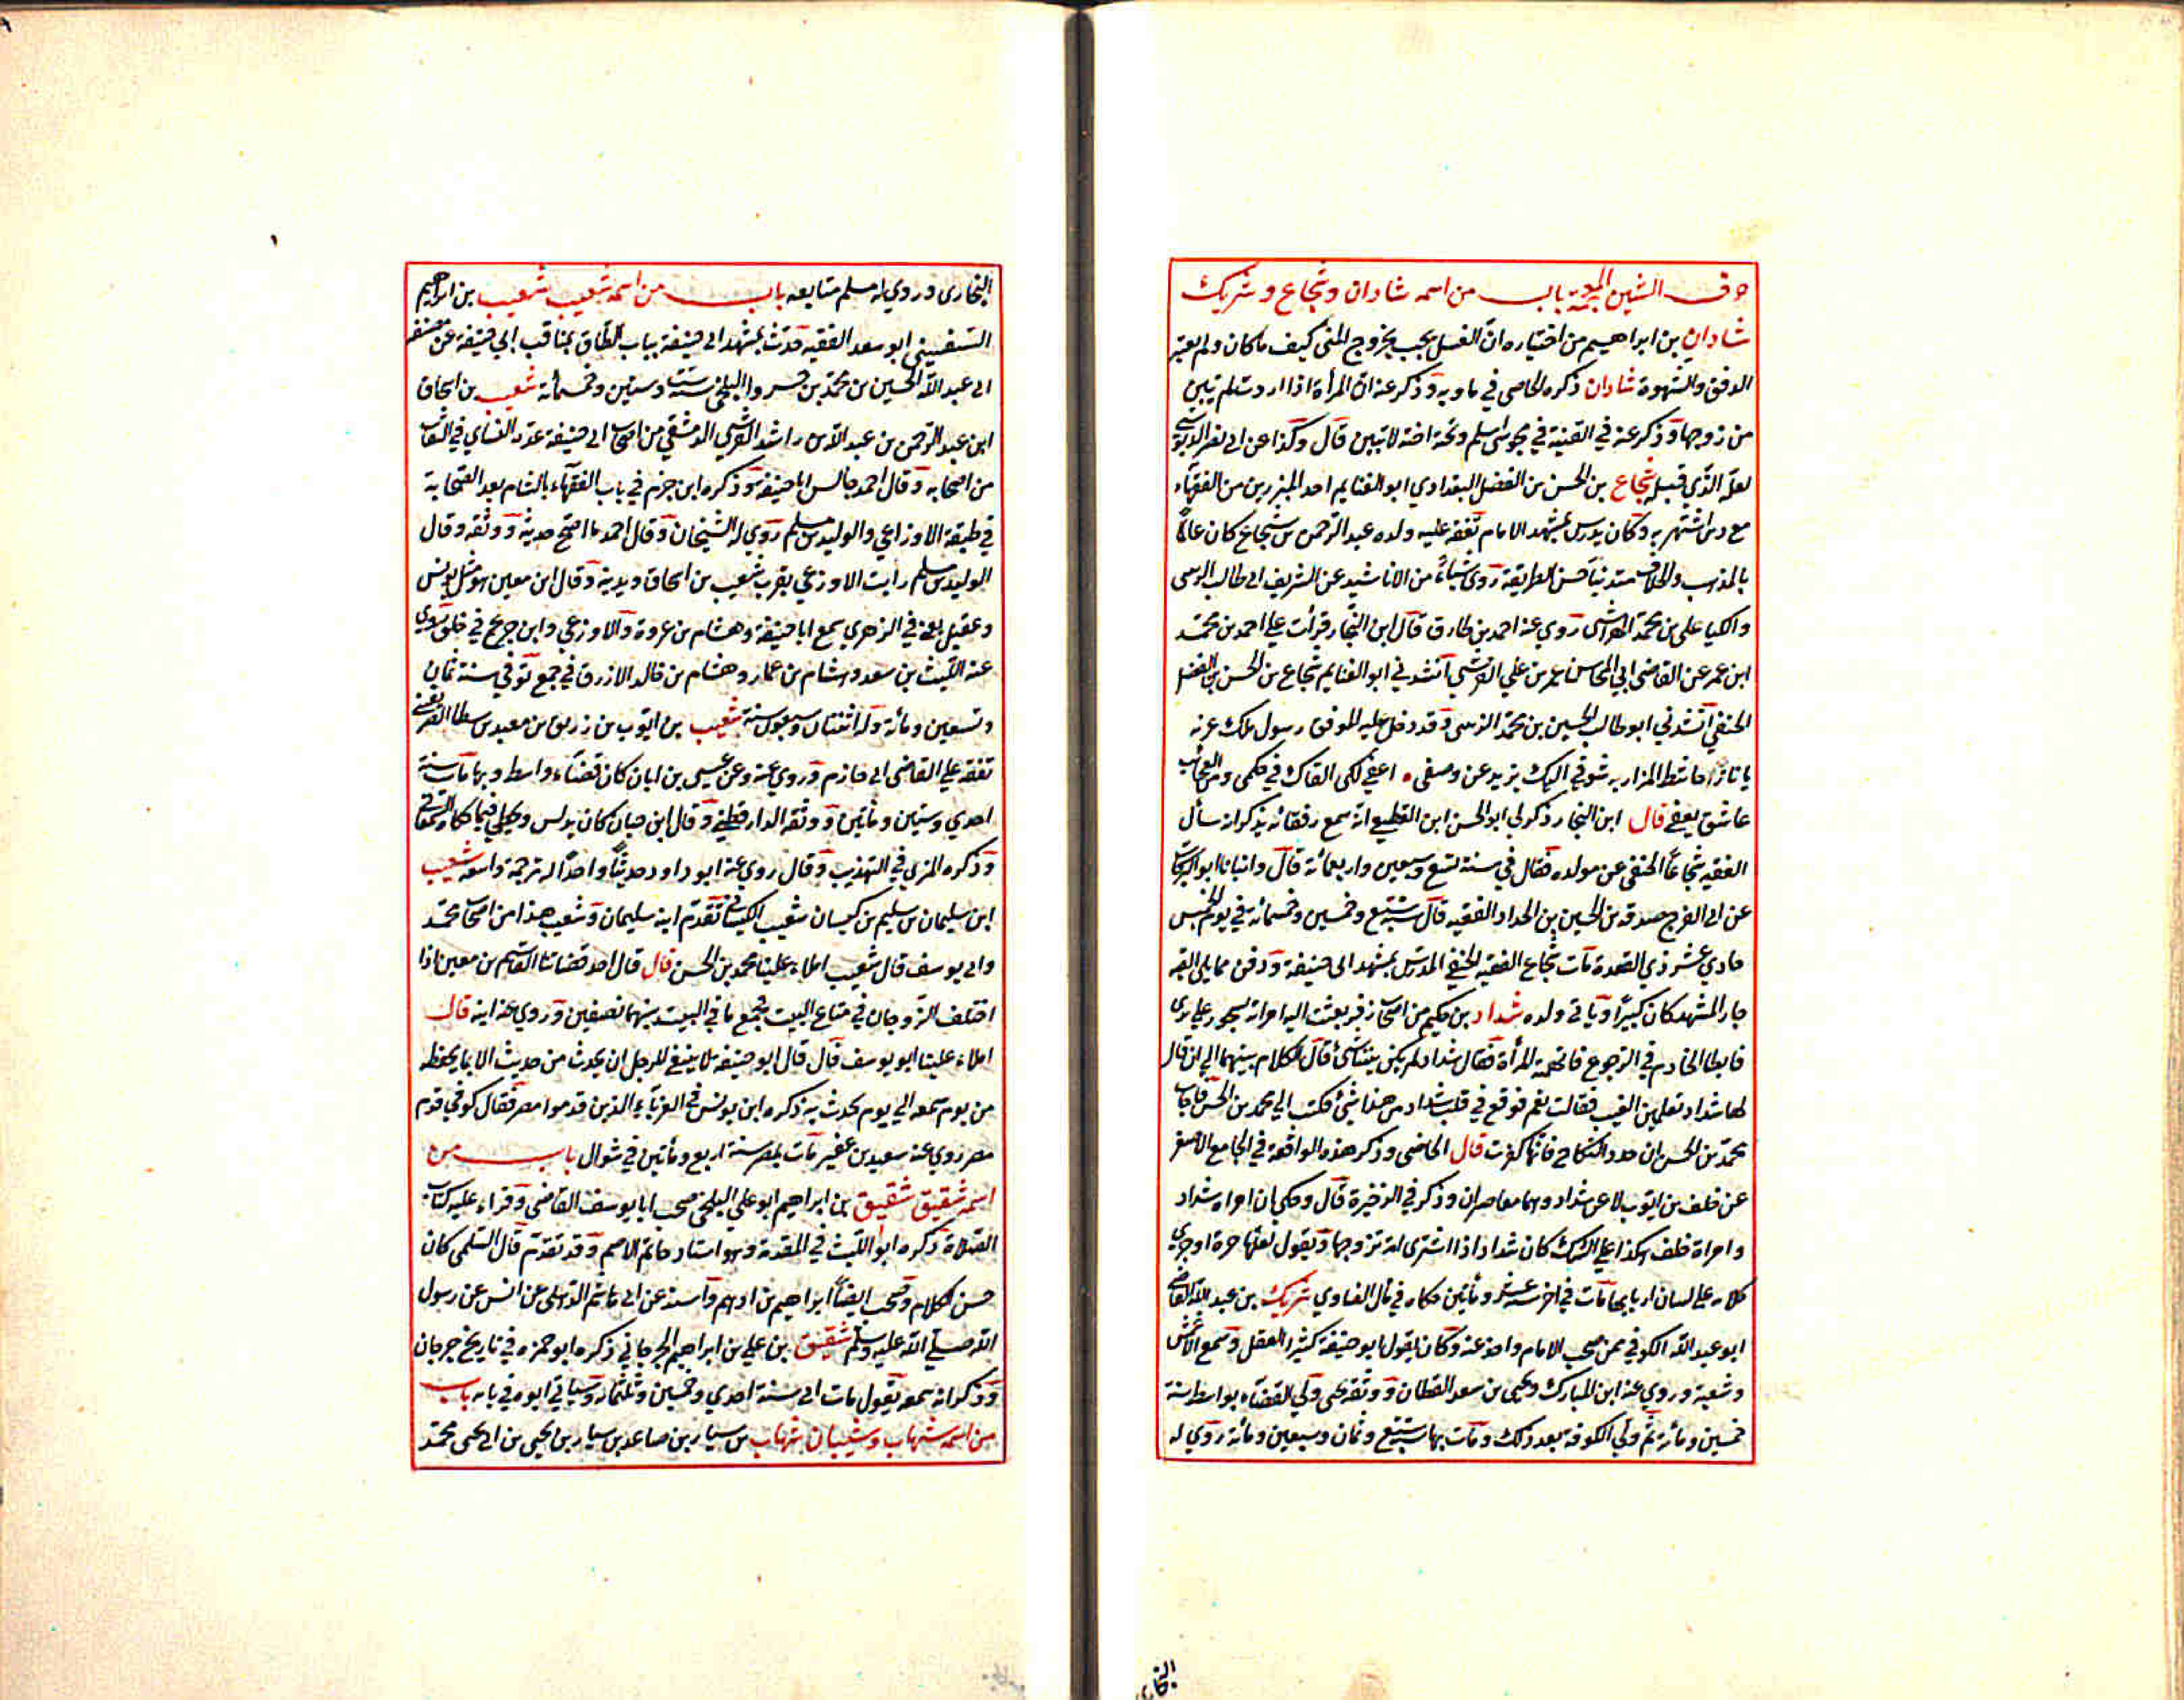 حرف الشين المعجمة باب من اسمه شادان وشجاع وشريك
شادان بن ابراهيم من اختياره ان الغسل يجب بخروج المنى كيف ما كان ولم يعتبر
الدفق والشهوة شادان ذكره الخاصي في ماويه وذكر عنه ان المرأة اذا اردت لم تبن
من زوجها وذكر عنه في القنية في مجوسى اسلم وتحته اخته لا تبين قال وكذا عن ابي نصر الدبوسي
لعله الذي قبله شجاع بن الحسن بن الفضل البغدادي ابو الغنايم احد المبرزين من الفقهاء
مع دين اشتهر به وكان يدرس بمشهد الامام تفقه عليه ولده عبد الرحمن بن شجاع كان عالما
بالمذهب والخلاف متدينا حسن الطريقة روى شياء من الاناشيد عن الشريف ابي طالب الزينبى
والكيا على بن محمد الهراسى روي عنه احمد بن طارق قال ابن النجار قرأت علي احمد بن محمد
ابن عمر عن القاضى ابي المحاسن عمر بن علي القرشي انشدني ابو الغنايم شجاع بن الحسن بن الفضل
الحنفي انشدني ابو طالب الحسين بن محمد الزينبى وقد دخل عليه الموفق رسول ملك غزنه
يا نازحا شط المزار به شوقي اليك يزيد عن وصفى اغفي لكى القاك في حلمى ومن العجائب
عاشق يغفي قال ابن النجار ذكر لي ابو الحسن ابن القطيعي انه سمع رفقائه يذكر انه سأل
الفقيه شجاعا الحنفي عن مولده فقال في سنة تسع وسبعين واربعمائة قال وانبانا ابو البركات
عن ابي الفرج صدقة بن الحسين بن الحداد الفقيه قال سنة سبع وخمسين وخمسمائة في يوم الخميس
حادي عشر ذي القعدة مات شجاع الفقيه الحنفي المدرس بمشهد ابى حنيفة ودفن مما يلي القبه
جار المشهد كان كبيرا وياتي ولده شداد بن حكيم من اصحاب زفر بعثت اليه امراته بسحور علي يدى
فابطا الخادم في الرجوع فاتهمته المرأة فقال شداد لم يكن بيننا شئ قال الكلام بينهما الي ان قال
لها شداد تعلمين الغيب فقالت نعم فوقع في قلب شداد من هذا شئ فكتب الي محمد بن الحسن فاجاب
محمد بن الحسن ان جدد النكاح فانها كفرت قال الخاصى وذكر هذه الواقعة في الجامع الاصغر
عن خلف بن ايوب لا عن شداد وهما معاصران وذكر في الذخيرة قال وحكي ان امراة شداد
وامراة خلف هكذا علي الشك كان شداد اذا اشترى امة تزوجها ويقول لعلها حرة او جري
كلام علي لسان اربابها مات في اخر سنة عشر ومائتين حكاه في مآل الفتاوي شريك بن عبد الله القاضى
ابو عبد الله الكوفي ممن صحب الامام واخذ عنه وكان يقول ابو حنيفة كثير العقل وسمع الاعمش
وشعبة وروي عنه ابن المبارك ويحيى بن سعيد القطان ووثقه يحيى ولي القضاء بواسط سنة
خمسين ومائة ثم ولي الكوفة بعد ذلك ومات بها سنة سبع وثمان وسبعين ومائة روي له
البخارى
البخارى وروي له مسلم متابعه باب من اسمه شعيب شعيب بن ابراهيم
ابو سعد الفقيه حدث بمشهد ابى حنيفة بباب الطاق بمناقب ابي حنيفة عن مصنفه
ابي عبد الله الحسين بن محمد بن خسرو البلخى سنة ست وستين وخمسمائة شعيب بن اسحاق
ابن عبد الرحمن بن عبد الله بن راشد القرشي الدمشقي من اصحاب ابي حنيفة عده النسائي في الثقات
من اصحابه وقال احمد جالس ابا حنيفة وذكره ابن حزم في باب الفقهاء بالشام بعد الصحابة
في طبقة الاوزاعي والوليد بن مسلم روي له الشيخان وقال احمد ما اصح حديثه ووثقه وقال
الوليد بن مسلم رايت الاوزعي يقرب شعيب بن اسحاق ويدنيه وقال ابن معين هو مثل يونس
وعقيل يعني في الزهري سمع ابا حنيفة وهشام بن عروة والاوزعي وابن جريج في خلق روي
عنه الليث بن سعد وهشام بن عمار وهشام بن خالد الازرق في جمع توفي سنة ثمان
وتسعين ومائة وله اثنتان وسبعون سنة شعيب بن ايوب بن زريق بن معبد بن شيطا الصريفيني
تفقه علي القاضى ابي خازم وروي عنه وعن عيسى بن ابان كان قضاء واسط وبها مات سنة
احدي وستين ومائتين ووثقه الدارقطني وقال ابن حبان كان يدلس ويخطي فيما حكاه السمعاني
وذكره المزي في التهذيب وقال روي عنه ابو داود حديثا واحدا له ترجمة واسعه شعيب
ابن سليمان بن سليم بن كيسان شعيب الكيساني تقدم ابنه سليمان وشعيب هذا من اصحاب محمد
وابي يوسف قال شعيب املاء علينا محمد بن الحسن قال قال احد قضاتنا القاسم بن معين اذا
اختلف الزوجان في متاع البيت فجميع ما في البيت بينهما نصفين وروي عنه ابنه قال
املاء علينا ابو يوسف قال قال ابو حنيفة لا ينبغي للرجل ان يحدث من حديث الا بما يحفظه
من يوم سمعه الي يوم يحدث به ذكره ابن يونس في الغرباء الذين قدموا مصر فقال كوفي قدم
مصر روي عنه سعيد بن عفير مات بمصر سنة اربع ومائتين في شوال باب من
اسمه شقيق شقيق بن ابراهيم ابو علي البلخي صحب ابا يوسف القاضى وقراء عليه كتاب
الصلاة ذكره ابو الليث في المقدمة وهو استاد حاتم الاصم وقد تقدم قال السلمى كان
حسن الكلام وصحب ايضا ابراهيم بن ادهم واسند عن ابي هاشم الابلى عن انس عن رسول
الله صلي الله عليه وسلم شقيق بن علي بن ابراهيم الجرجاني ذكره ابو حمزه في تاريخ جرجان
وذكر انه سمعه يقول مات ابي سنة احدي وخمسين وثلثمائة وسياتي ابوه في بابه باب
من اسمه شهاب وشيبان شهاب بن سيار بن صاعد بن سيار بن يحيى بن ابي يحيى محمد